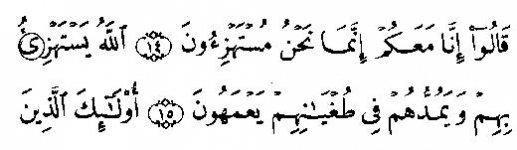 قَالُوٓا۟ إِنَّا مَعَكُمْ إِنَّمَا نَحْنُ مُسْتَهْزِءُونَ ١٤ ٱللَّهُ يَسْتَهْزِئُ
بِهِمْ وَيَمُدُّهُمْ فِى طُغْيَـٰنِهِمْ يَعْمَهُونَ ١٥ أُو۟لَـٰٓئِكَ ٱلَّذِينَ